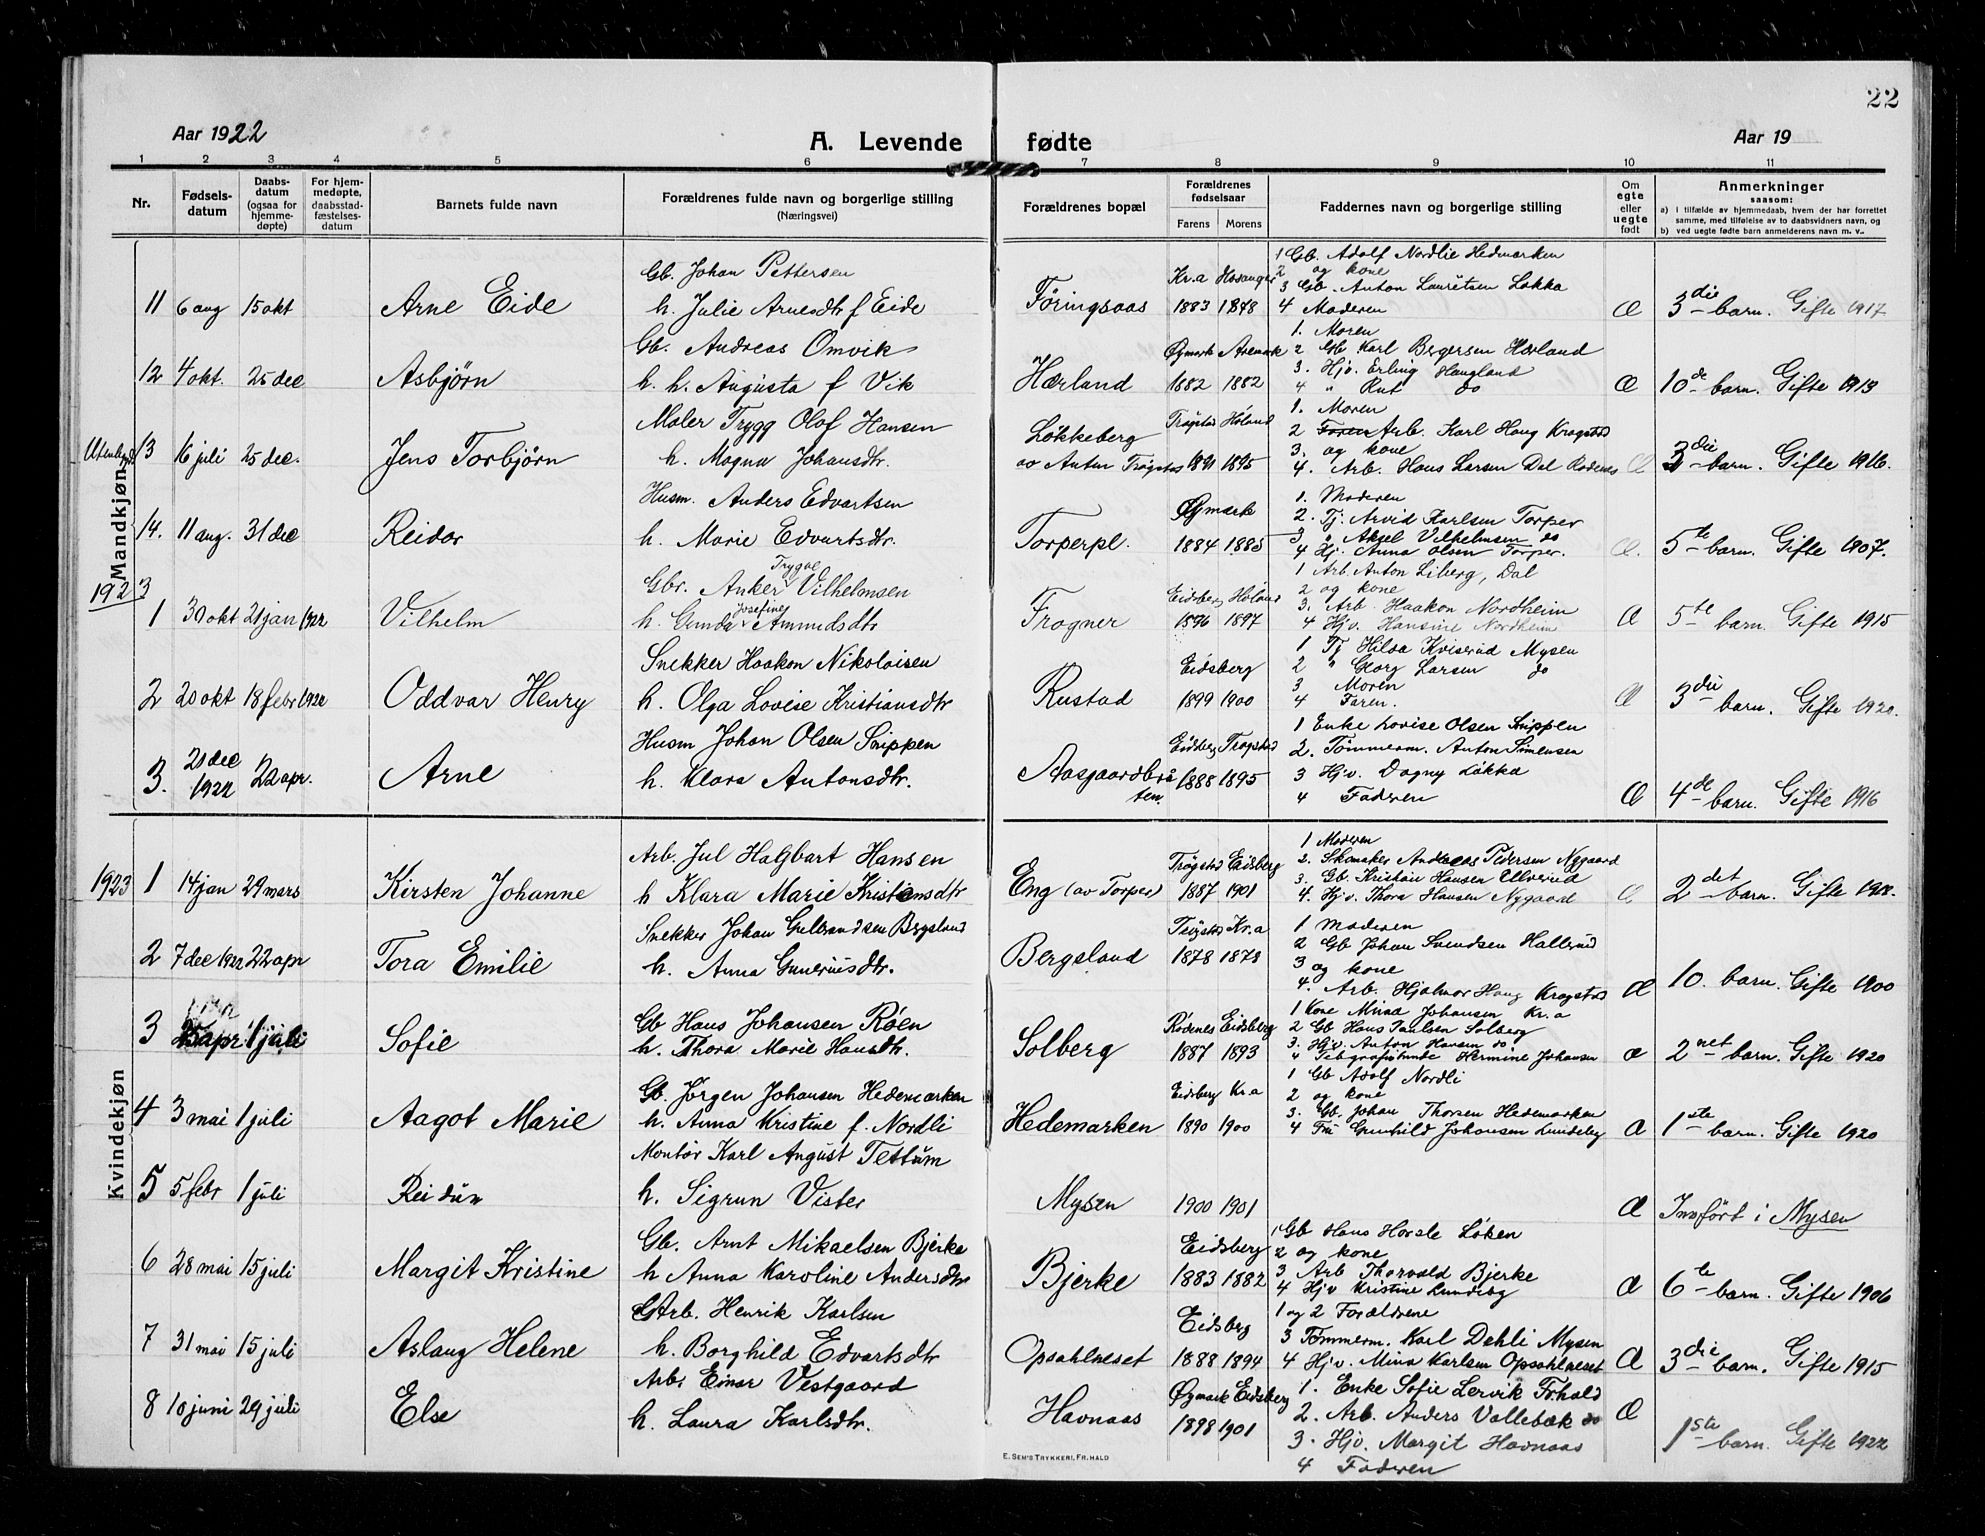 22
Aar 1922
A. Levende fødte
Aar 19
1 2 3 4 5 6 7 8 9 10 11
Nr.
Fødsels-
datum
Daabs-
datum
(ogsaa for
hjemme-
døpte)
For hjem-
medøpte,
daabsstad-
fæstelses-
datum
Barnets fulde navn
Forældrenes fulde navn og borgerlige stilling
(Næringsvei)
Forældrenes bopæl
Forældrenes
fødselsaar
Farens Morens
Faddernes navn og borgerlige stilling
Om
egte
eller
uegte
født
Anmerkninger
saasom:
a) I tilfælde av hjemmedaab, hvem der har forrettet
samme, med tilføielse av to daabsvidners navn, og
b) ved uegte fødte barn anmelderens navn m. v..
Mandkjøn
11 6 aug 15 okt
Arne Eide
Gb. Johan Pettersen
h. Julie Arnesdtr f Eide
Føringsaas
Kr.a
1883 1878
1 Gb. Adolf Nordlie Hedmarken
2 og kone
3 Gb. Anton Lauritsen Løkka
4 Moderen
Æ
3die barn. Gifte 1917
12 4 okt. 25 dec
Asbjørn
Gb. Andreas Omvik
h. h. Augusta f Vik
Hærland
Øymark Aremark
1882 1882
1. Moren
2 Gb Karl Bergersen Hærland
3. Hjv. Erling Haugland
4 " Rut do
Æ
10de barn. Gifte 1913
Utenbygds
13 16 juli 25 dec.
Jens Torbjørn
Maler Trygg Olaf Hansen
h. Magna Johansdtr.
Løkkeberg
av Anten Trøgstad
Trøgstad Høland
1891 1895
1. Moren
2 Faren Arb. Karl Haug Kragstad
3. og kone
4. Arb. Hans Larsen Dal Rødenes
Æ
3die barn. Gifte 1916.
14. 11 aug. 31 dec
Reidar
Husm. Anders Edvartsen
h. Marie Edvartsdtr.
Torperpl.
Øymark
1884 1885
1. Moderen
2. Tj. Arvid Karlsen Torper
3 " Aksel Vilhelmsen do
4 Hj. Anna Olsen Torper.
Æ.
5te barn. Gifte 1907.
1923
1 30 okt 21 jan 1922
Vilhelm
Trygve
Gbr. Anker Vilhelmsen
Josefine
h. Gunda Amundsdtr
Frogner
Eidsberg Høland
1896 1897
1 Arb. Anton Liberg, Dal
2 og kone
3. Arb. Haakon Nordheim
4 Hjv. Hansine Nordheim
Æ
5te barn. Gifte 1915
2 20 okt 18 febr 1922
Oddvar Henry
Snekker Haakon Nikolaisen
h. Olga Lovise Kristiansdtr
Rustad
Eidsberg
1899 1900
1 Tj Hilda Kviserud Mysen
2 " Georg Larsen do
3 Moren
4 Faren.
Æ
3die barn. Gifte 1920.
3. 20 dec
1922 22 apr.
Arne
Husm Johan Olsen Snippen
h. Klara Antonsdtr.
Aasgaardbrå
ten
Eidsberg Trøgstad
1888 1895
1 Enke Lovise Olsen Snippen
2. Tømmerm. Anton Simensen
3 Hjv. Dagny Løkka
4 Faderen
Æ
4de barn. Gifte 1916
1923
Kvindekjøn
1 14 jan 29 mars
Kirsten Johanne
Arb. Jul Hagbart Hansen
h Klara Marie Kristiansdtr
Eng (av Torper)
Trøgstad Eidsberg
1887 1901
1 Moderen
2. Skomaker Andreas Pedersen Nygaard
3. Gb. Kristian Hansen Ellverud
4. Hjv. Thora Hansen Nygaard
Æ
2det barn. Gifte
2 7 dec 1922 22 apr
Tora Emilie
Snekker Johan Gulbrandsen Bergsland
h. Anna Guneriusdtr.
Bergsland
Trøgstad Kr.a
1878 1878
1 Moderen
2 Gb Johan Svendsen Hallerud
3 og kone
4. Arb. Hjalmar Haug Kragstad
Æ
10. barn. Gifte 1900
3 25 apr 1 juli
Sofie
Gb Hans Johansen Røen
h. Thora Marie Hansdtr.
Solberg
Rødenes Eidsberg
1887 1893
1 Kone Minda Johansen Kr.a
2 Gb Hans Paulsen Solberg
3. Hjv. Anton Hansen do
4 Telegrafistinde Hermine Johansen
Æ
2net barn. Gifte 1920
4 3 mai 1 juli
Aagot Marie
Gb. Jørgen Johansen Hedemarken
h. Anna Kristine f. Nordli
Hedemarken
Eidsberg Kr.a
1890 1900
1 Gb Adolf Nordli
2 og kone
3. Gb. Johan Thorsen Hedemarken
4 Frk Gunhild Johansen Lundeby
Æ
1ste barn. Gifte 1920
5 5 febr 1 juli
Reidun
Montør Karl August Tettum
h. Sigrun Vister
Mysen
1900 1901
Æ
Innført i Mysen
6 28 mai 15 juli
Margit Kristine
Gb. Arnt Mikaelsen Bjerke
h Anna Karoline Andersdtr
Bjerke
Eidsberg
1883 1882
1 Gb Hans Harsle Løken
2 og kone
3 Arb Thorvald Bjerke
4 Hjv Kristine Lundeby
Æ
6te barn. Gifte 1906
7 31 mai 15 juli
Aslaug Helene
Arb. Henrik Karlsen
h. Borghild Edvartsdtr
Opsahlneset
Eidsberg
1888 1894
1 og 2 Forældrene
3 Tømmerm. Karl Dahli Mysen
4 Hjv. Mina Karlsen Opsahlneset
Æ
3die barn. Gifte 1915
8 10 juni 29 juli
Else
Arb. Einar Vestgaard
h. Laura Karlsdtr.
Havnaas
Øymark Eidsberg
1898 1901
1. Enke Sofie Lervik Frhald
2. Arb. Anders Vallebæk do
3. Hjv. Margit Havnaas
4 Faderen
Æ
1ste barn. Gifte 1922
E. SEM'S TRYKKERI, FR.HALD